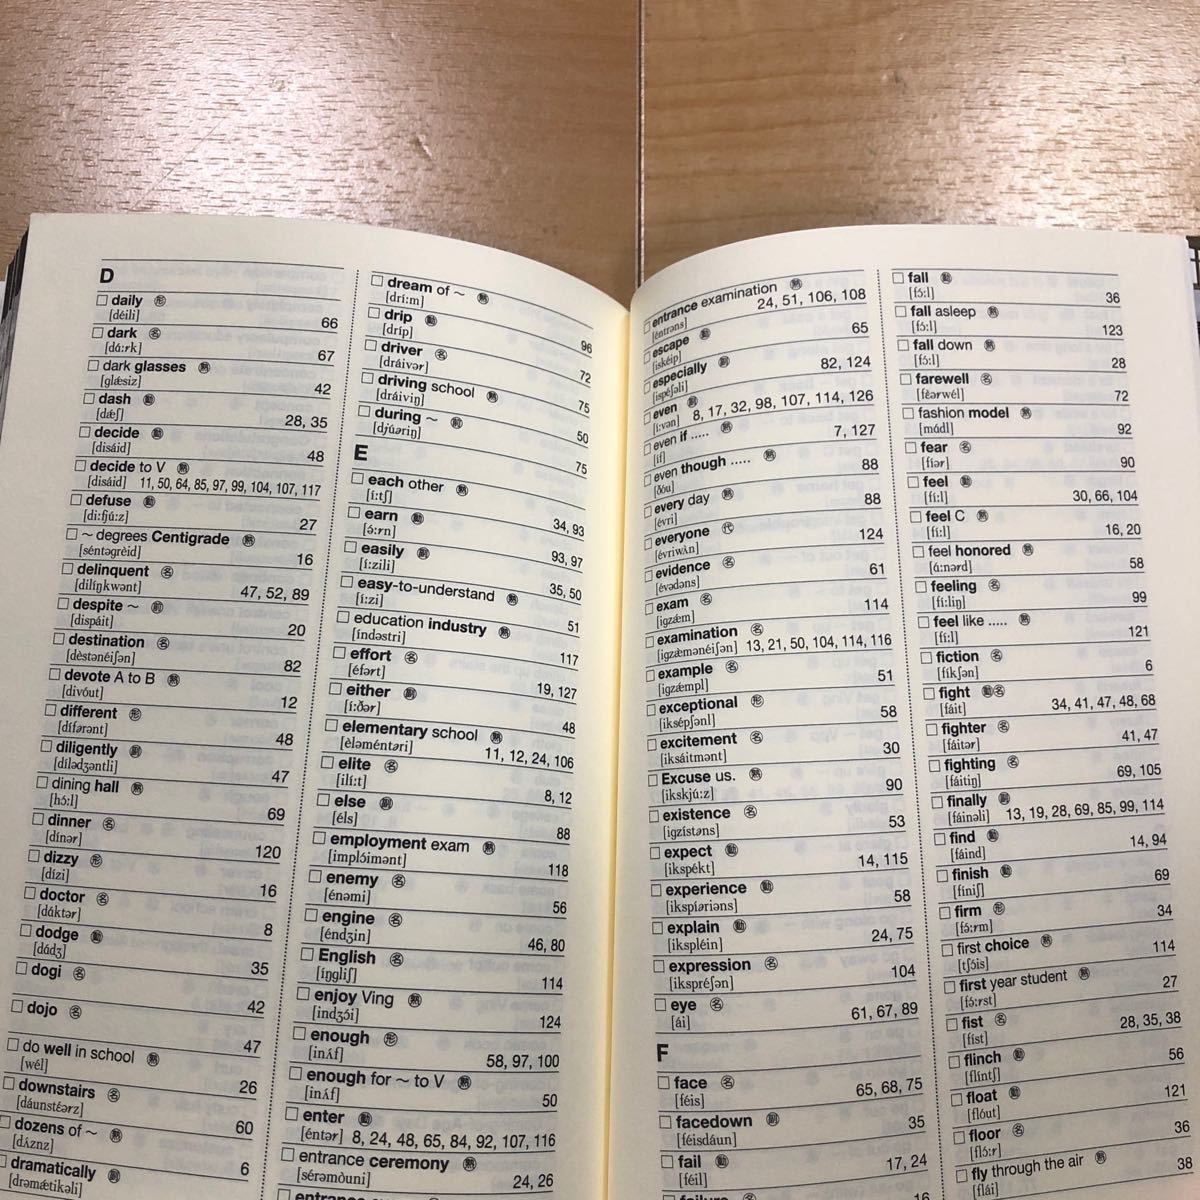 D
□ daily 形
[déili] 66
□ dark 名
[dάːrk] 67
□ dark glasses 熟
[glǽsiz] 42
□ dash 動
[dǽʃ] 28, 35
□ decide 動
[disáid] 48
□ decide to V 熟
[disáid] 11, 50, 64, 85, 97, 99, 104, 107, 117
□ defuse 動
[diːfjúːz] 27
□ ~ degrees Centigrade 熟
[séntəgrèid] 16
□ delinquent 名
[dilíŋkwənt] 47, 52, 89
□ despite ~ 前
[dispáit] 20
□ destination 名
[dèstənéiʃən] 82
□ devote A to B 熟
[divóut] 12
□ different 形
[dífərənt] 48
□ diligently 副
[dílədʒəntli] 47
□ dining hall 熟
[hɔ́ːl] 69
□ dinner 名
[dínər] 120
□ dizzy 形
[dízi] 16
□ doctor 名
[dάktər] 8
□ dodge 動
[dάdʒ] 35
□ dogi 名
42
□ dojo 名
47
□ do well in school 熟
[wél] 26
□ downstairs 名
[dáunstéərz] 60
□ dozens of ~ 熟
[dʌ́znz] 6
□ dramatically 副
[drəmǽtikəli]
□ dream of ~ 熟
[dríːm] 96
□ drip 動
[dríp] 72
□ driver 名
[dráivər] 75
□ driving school 熟
[dráiviŋ] 50
□ during ~ 前
[djúəriŋ] 75
E
□ each other 熟
[íːtʃ] 34, 93
□ earn 動
[ə́ːrn] 93, 97
□ easily 副
[íːzili] 35, 50
□ easy-to-understand 熟
[íːzi] 51
□ education industry 熟
[índəstri] 117
□ effort 名
[éfərt] 19, 127
□ either 副
[íːðər] 48
□ elementary school 熟
[èləméntəri] 11, 12, 24, 106
□ elite 名
[ilíːt] 8, 12
□ else 副
[éls] 88
□ employment exam 熟
[implɔ́imənt] 118
□ enemy 名
[énəmi] 56
□ engine 名
[éndʒin] 46, 80
□ English 名
[íŋgliʃ] 114
□ enjoy Ving 熟
[indʒɔ́i] 124
□ enough 形
[inʌ́f] 58, 97, 100
□ enough for ~ to V 熟
[inʌ́f] 50
□ enter 動
[éntər] 8, 24, 48, 65, 84, 92, 107, 116
□ entrance ceremony 熟
[sérəmòuni] 24, 26
□ entrance examination 熟
[éntrəns] 24, 51, 106, 108
□ escape 動
[iskéip] 65
□ especially 副
[ispéʃəli] 82, 124
□ even 副
[íːvən] 8, 17, 32, 98, 107, 114, 126
□ even if ..... 熟
[íf] 7, 127
□ even though ..... 熟
[ðóu] 88
□ every day 熟
[évri] 88
□ everyone 代
[évriwʌ̀n] 124
□ evidence 名
[évədəns] 61
□ exam 名
[igzǽm] 114
□ examination 名
[igzæ̀mənéiʃən] 13, 21, 50, 104, 114, 116
□ example 名
[igzǽmpl] 51
□ exceptional 形
[iksépʃənl] 58
□ excitement 名
[iksáitmənt] 30
□ Excuse us. 熟
[ikskjúːz] 90
□ existence 名
[igzístəns] 53
□ expect 動
[ikspékt] 14, 115
□ experience 動
[ikspíəriəns] 58
□ explain 動
[ikspléin] 24, 75
□ expression 名
[ikspréʃən] 104
□ eye 名
[ái] 61, 67, 89
F
□ face 名
[féis] 65, 68, 75
□ facedown 副
[féisdáun] 35
□ fail 動
[féil] 17, 24
□ failure 名
16
□ fall 動
[fɔ́ːl] 36
□ fall asleep 熟
[fɔ́ːl] 123
□ fall down 熟
[fɔ́ːl] 28
□ farewell 名
[fèərwél] 72
□ fashion model 熟
[mάdl] 92
□ fear 名
[fíər] 90
□ feel 動
[fíːl] 30, 66, 104
□ feel C 熟
[fíːl] 16, 20
□ feel honored 熟
[άːnərd] 58
□ feeling 名
[fíːliŋ] 99
□ feel like ..... 熟
[fíːl] 121
□ fiction 名
[fíkʃən] 6
□ fight 動名
[fáit] 34, 41, 47, 48, 68
□ fighter 名
[fáitər] 41, 47
□ fighting 名
[fáitiŋ] 69, 105
□ finally 副
[fáinəli] 13, 19, 28, 69, 85, 99, 114
□ find 動
[fáind] 14, 94
□ finish 動
[fíniʃ] 69
□ firm 形
[fə́ːrm] 34
□ first choice 熟
[tʃɔ́is] 114
□ first year student 熟
[fə́ːrst] 27
□ fist 名
[físt] 28, 35, 38
□ flinch 動
[flíntʃ] 56
□ float 動
[flóut] 121
□ floor 名
[flɔ́ːr] 36
□ fly through the air 熟
[flái] 38